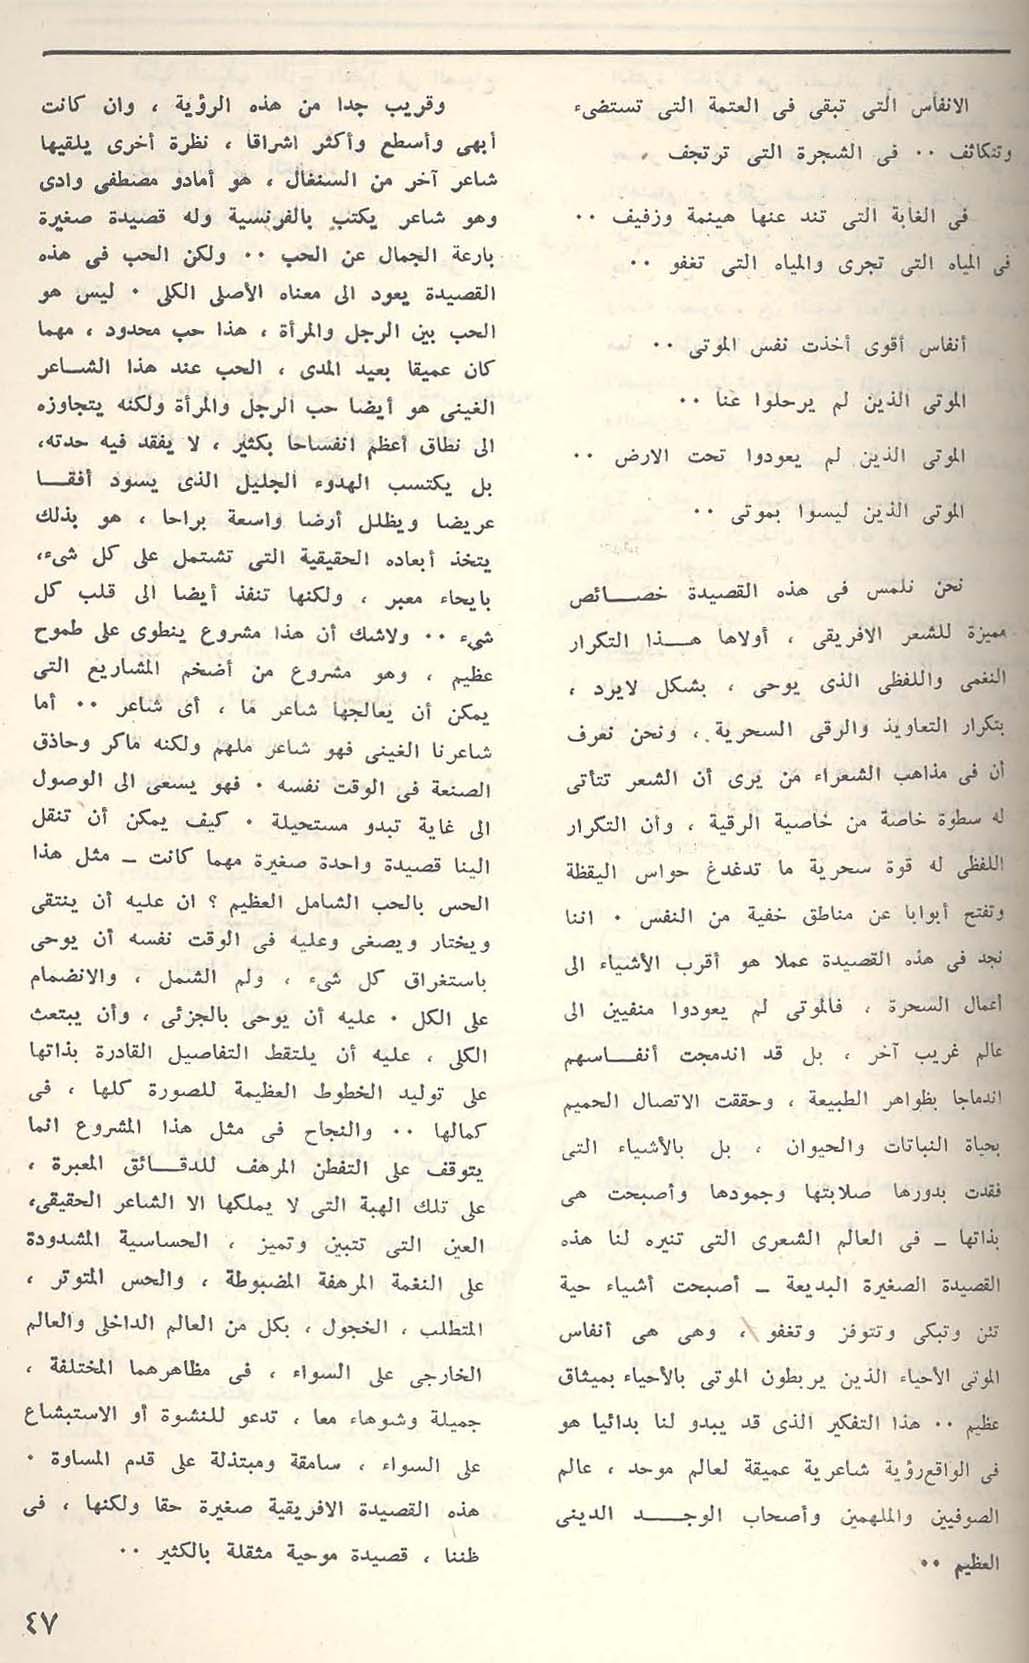 الانفاس التى تبقى فى العتمة التى تستضىء
وتتكاثف ٠٠ فى الشجرة التى ترتجف ،
فى الغابة التى تند عنها هينمة وزفيف ٠٠
فى المياه التى تجرى والمياه التى تغفو ٠٠
أنفاس أقوى أخذت نفس الموتى ٠٠
الموتى الذين لم يرحلوا عنا ٠٠
الموتى الذين لم يعودوا تحت الارض ٠٠
الموتى الذين ليسوا بموتى ٠٠
نحن نلمس فى هذه القصيدة خصــائص
مميزة للشعر الافريقى ، أولاها هــذا التكرار
النغمى واللفظى الذى يوحى ، بشكل لايرد ،
بتكرار التعاويذ والرقى السحرية ، ونحن نعرف
أن فى مذاهب الشعراء من يرى أن الشعر تتأتى
له سطوة خاصة من خاصية الرقية ، وأن التكرار
اللفظى له قوة سحرية ما تدغدغ حواس اليقظة
وتفتح أبوابا عن مناطق خفية من النفس ٠ اننا
نجد فى هذه القصيدة عملا هو أقرب الأشياء الى
أعمال السحرة ، فالموتى لم يعودوا منفيين الى
عالم غريب آخر ، بل قد اندمجت أنفــاسهم
اندماجا بظواهر الطبيعة ، وحققت الاتصال الحميم
بحياة النباتات والحيوان ، بل بالأشياء التى
فقدت بدورها صلابتها وجمودها وأصبحت هى
بذاتها ـ فى العالم الشعرى التى تنيره لنا هذه
القصيدة الصغيرة البديعة ـ أصبحت أشياء حية
تئن وتبكى وتتوفز وتغفو ، وهى هى أنفاس
الموتى الأحياء الذين يربطون الموتى بالأحياء بميثاق
عظيم ٠٠ هذا التفكير الذى قد يبدو لنا بدائيا هو
فى الواقع رؤية شاعرية عميقة لعالم موحد ، عالم
الصوفيين والملهمين وأصحاب الوجــد الدينى
العظيم ٠٠
وقريب جدا من هذه الرؤية ، وان كانت
أبهى وأسطع وأكثر اشراقا ، نظرة أخرى يلقيها
شاعر آخر من السنغال ، هو أمادو مصطفى وادى
وهو شاعر يكتب بالفرنسية وله قصيدة صغيرة
بارعة الجمال عن الحب ٠٠ ولكن الحب فى هذه
القصيدة يعود الى معناه الأصلى الكلى ٠ ليس هو
الحب بين الرجل والمرأة ، هذا حب محدود ، مهما
كان عميقا بعيد المدى ، الحب عند هذا الشــاعر
الغينى هو أيضا حب الرجل والمرأة ولكنه يتجاوزه
الى نطاق أعظم انفساحا بكثير ، لا يفقد فيه حدته،
بل يكتسب الهدوء الجليل الذى يسود أفقــا
عريضا ويظلل أرضا واسعة براحا ، هو بذلك
يتخذ أبعاده الحقيقية التى تشتمل على كل شىء،
بايحاء معبر ، ولكنها تنفذ أيضا الى قلب كل
شىء ٠٠ ولاشك أن هذا مشروع ينطوى على طموح
عظيم ، وهو مشروع من أضخم المشاريع التى
يمكن أن يعالجها شاعر ما ، أى شاعر ٠٠ أما
شاعرنا الغينى فهو شاعر ملهم ولكنه ماكر وحاذق
الصنعة فى الوقت نفسه ٠ فهو يسعى الى الوصول
الى غاية تبدو مستحيلة ٠ كيف يمكن أن تنقل
الينا قصيدة واحدة صغيرة مهما كانت ـ مثل هذا
الحس بالحب الشامل العظيم ؟ ان عليه أن ينتقى
ويختار ويصغى وعليه فى الوقت نفسه أن يوحى
باستغراق كل شىء ، ولم الشمل ، والانضمام
على الكل ٠ عليه أن يوحى بالجزئى ، وأن يبتعث
الكلى ، عليه أن يلتقط التفاصيل القادرة بذاتها
على توليد الخطوط العظيمة للصورة كلها ، فى
كمالها ٠٠ والنجاح فى مثل هذا المشروع انما
يتوقف على التفطن المرهف للدقــائق المعبرة ،
على تلك الهبة التى لا يملكها الا الشاعر الحقيقى،
العين التى تتبين وتميز ، الحساسية المشدودة
على النغمة المرهفة المضبوطة ، والحس المتوتر ،
المتطلب ، الخجول ، بكل من العالم الداخلى والعالم
الخارجى على السواء ، فى مظاهرهما المختلفة ،
جميلة وشوهاء معا ، تدعو للنشوة أو الاستبشاع
على السواء ، سامقة ومبتذلة على قدم المساوة ٠
هذه القصيدة الافريقية صغيرة حقا ولكنها ، فى
ظننا ، قصيدة موحية مثقلة بالكثير ٠٠
٤٧